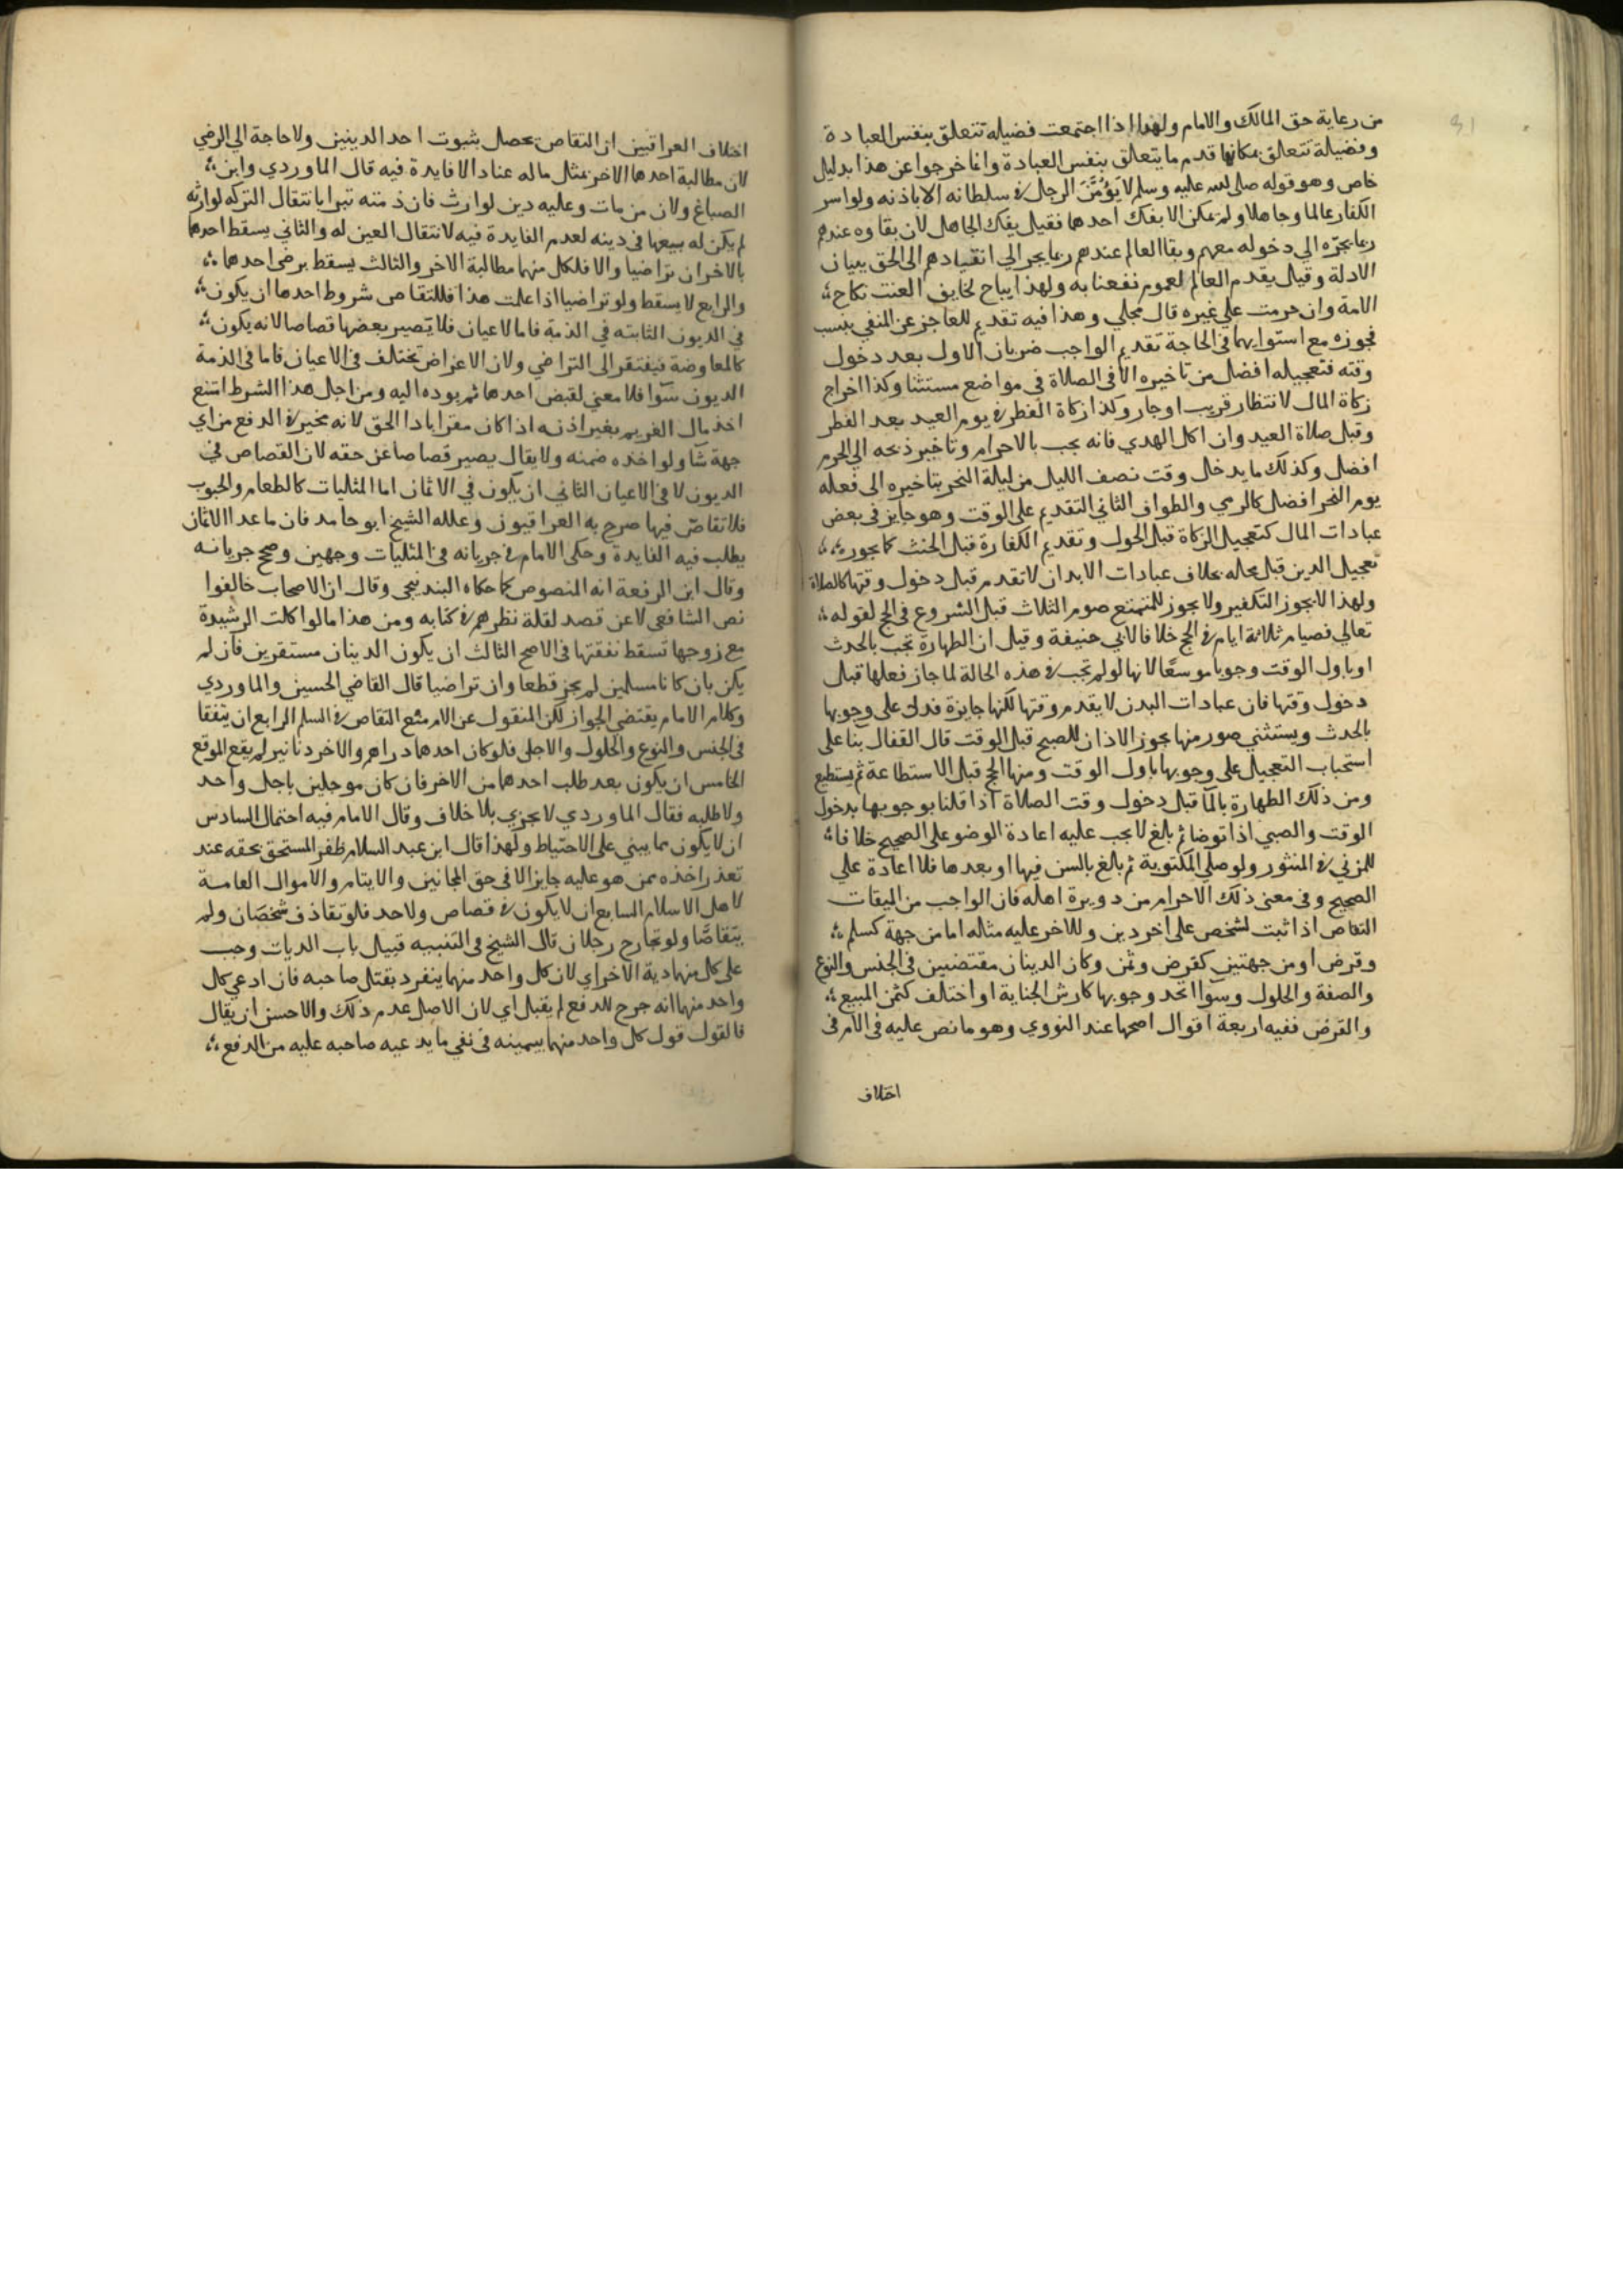 من رعاية حق المالك والامام ولهذا اذا اجتمعت فضيلة تتعلق بنفس العبادة
وفضيلة تتعلق بمكانها قدم ما يتعلق بنفس العبادة وانما خرجوا عن هذا بدليل
خاص وهو قوله صلى الله عليه وسلم لا يَؤُمَّنَّ الرجل في سلطانه الا باذنه ولو اسر
الكفار عالما وجاهلا ولم يمكن الا بفك احدها فقيل يفك الجاهل لان بقاوه عندهم
ربما يجره الي دخوله معهم وبقا العالم عندهم ربما يجر الي انقيادهم الى الحق ببيان
الادلة وقيل يقدم العالم لعموم نفعنا به ولهذا يباح لخايف العنت نكاح
الامة وان حرمت علي غيره قال مجلي وهذا فيه تقديم للعاجز عن المنفي بنسب
فجوزه مع استوايهما في الحاجة تقديم الواجب ضربان الاول بعد دخول
وقته فتعجيله افضل من تاخيره الا في الصلاة في مواضع مستثنا وكذا اخراج
زكاة المال لانتظار قريب او جار وكذا زكاة الفطر في يوم العيد بعد الفطر
وقبل صلاة العيد وان اكل الهدي فانه يجب بالاحرام وتاخير ذبحه الي الحرم
افضل وكذلك ما يدخل وقت نصف الليل من ليلة النحر بتاخيره الى فعله
يوم النحر افضل كالرمي والطواف الثاني التقديم على الوقت وهو جايز في بعض
عبادات المال كتعجيل الزكاة قبل الحول وتقديم الكفارة قبل الحنث كما يجوز
تعجيل الدين قبل محله بخلاف عبادات الابدان لا تقدم قبل دخول وقتها كالصلاة
ولهذا لا يجوز التكفير ولا يجوز للمتمتع صوم الثلاث قبل الشروع في الحج لقوله
تعالي فصيام ثلاثة ايام في الحج خلافا لابي حنيفة وقيل ان الطهارة تجب بالحدث
او باول الوقت وجوبا موسعا لانها لو لم تجب في هذه الحالة لما جاز فعلها قبل
دخول وقتها فان عبادات البدن لا يقدم وقتها لكنها جايزة فدل على وجوبها
بالحدث ويستثني صور منها يجوز الاذان للصبح قبل الوقت قال القفال بنا على
استحباب التعجيل على وجوبها باول الوقت ومنها الحج قبل الاستطاعة ثم يستطيع
ومن ذلك الطهارة بالمآ قبل دخول وقت الصلاة اذا قلنا بوجوبها بدخول
الوقت والصبي اذا توضا ثم بالغ لا يجب عليه اعادة الوضو على الصحيح خلافا
للمزني في المنثور ولو صلي المكتوبة ثم بالغ بالسن فيها او بعدها فلا اعادة علي
الصحيح وفي معنى ذلك الاحرام من دويرة اهله فان الواجب من الميقات
التقاص اذا ثبت لشخص على اخر دين وللاخر عليه مثاله اما من جهة كسلم
وقرض او من جهتين كقرض وثمن وكان الدينان مقتضيين في الجنس والنوع
والصفة والحلول وسوآ اتحد وجوبها كارش الجناية او اختلف كثمن المبيع
والقرض ففيه اربعة اقوال اصحها عند النووي وهو ما نص عليه في الام في
اختلاف
اختلاف العراقيين ان التقاص يحصل بثبوت احد الدينين ولا حاجة الي الرضي
لان مطالبة احدها الاخر بمثل ماله عنادا لا فايدة فيه قال الماوردي وابن
الصباغ ولان من مات وعليه دين لوارث فان ذمته تبرا بانتقال التركه لوارثه
لم يكن له بيعها في دينه لعدم الفايدة فيه لانتقال العين له والثاني يسقط احدها
بالاخر ان تراضيا والا فلكل منهما مطالبة الاخر والثالث يسقط برضى احدها
والرابع لا يسقط ولو تراضيا اذا علمت هذا فللتقاص شروط احدها ان يكون
في الديون الثابته في الذمة فاما الاعيان فلا يصير بعضها قصاصا لانه يكون
كالمعاوضة فيفتقر الى التراضي ولان الاعراض تختلف في الاعيان فاما في الذمة
الديون سوآ فلا معني لقبض احدها ثم يوده اليه ومن اجل هذا الشرط امتنع
اخذ مال الغريم بغير اذنه اذا كان مقرا بادا الحق لانه مخير في الدفع من اي
جهة شا ولو اخذه ضمنه ولا يقال يصير قصاصا عن حقه لان القصاص في
الديون لا في الاعيان الثاني ان يكون في الاثمان اما المثليات كالطعام والحبوب
فلا تقاصّ فيها صرح به العراقيون وعلله الشيخ ابو حامد فان ما عدا الاثمان
يطلب فيه الفايدة وحكى الامام في جريانه في المثليات وجهين وصحح جريانه
وقال ابن الرفعة انه المنصوص كما حكاه البندنيجي وقال ان الاصحاب خالفوا
نص الشافعي لا عن قصد لقلة نظرهم في كتابه ومن هذا ما لو اكلت الرشيدة
مع زوجها تسقط نفقتها في الاصح الثالث ان يكون الدينان مستقرين فان لم
يكن بان كانا مسلمين لم يجز قطعا وان تراضيا قال القاضي الحسين والماوردي
وكلام الامام يقتضي الجواز لكن المنقول عن الام منع التقاص في السلم الرابع ان يتفقا
في الجنس والنوع والحلول والاجل فلو كان احدها دراهم والاخر دنانير لم يقع الموقع
الخامس ان يكون بعد طلب احدها من الاخر فان كان موجلين باجل واحد
ولا طلبه فقال الماوردي لا يجزي بلا خلاف وقال الامام فيه احتمال السادس
ان لا يكون مما يبني على الاحتياط ولهذا قال ابن عبد السلام ظفر المستحق بحقه عند
تعذر اخذه ممن هو عليه جايز الا في حق المجانين والايتام والاموال العامة
لاهل الاسلام السابع ان لا يكون في قصاص ولا حد فلو تقاذف شخصان ولم
يتقاصّا ولو تجارح رجلان قال الشيخ في التنبيه قبيل باب الديات وجب
على كل منهما دية الاخر اي لان كل واحد منهما ينفرد بقتل صاحبه فان ادعي كل
واحد منهما انه جرح للدفع لم يقبل اي لان الاصل عدم ذلك والاحسن ان يقال
فالقول قول كل واحد منهما بيمينه في نفي ما يدعيه صاحبه عليه من الدفع